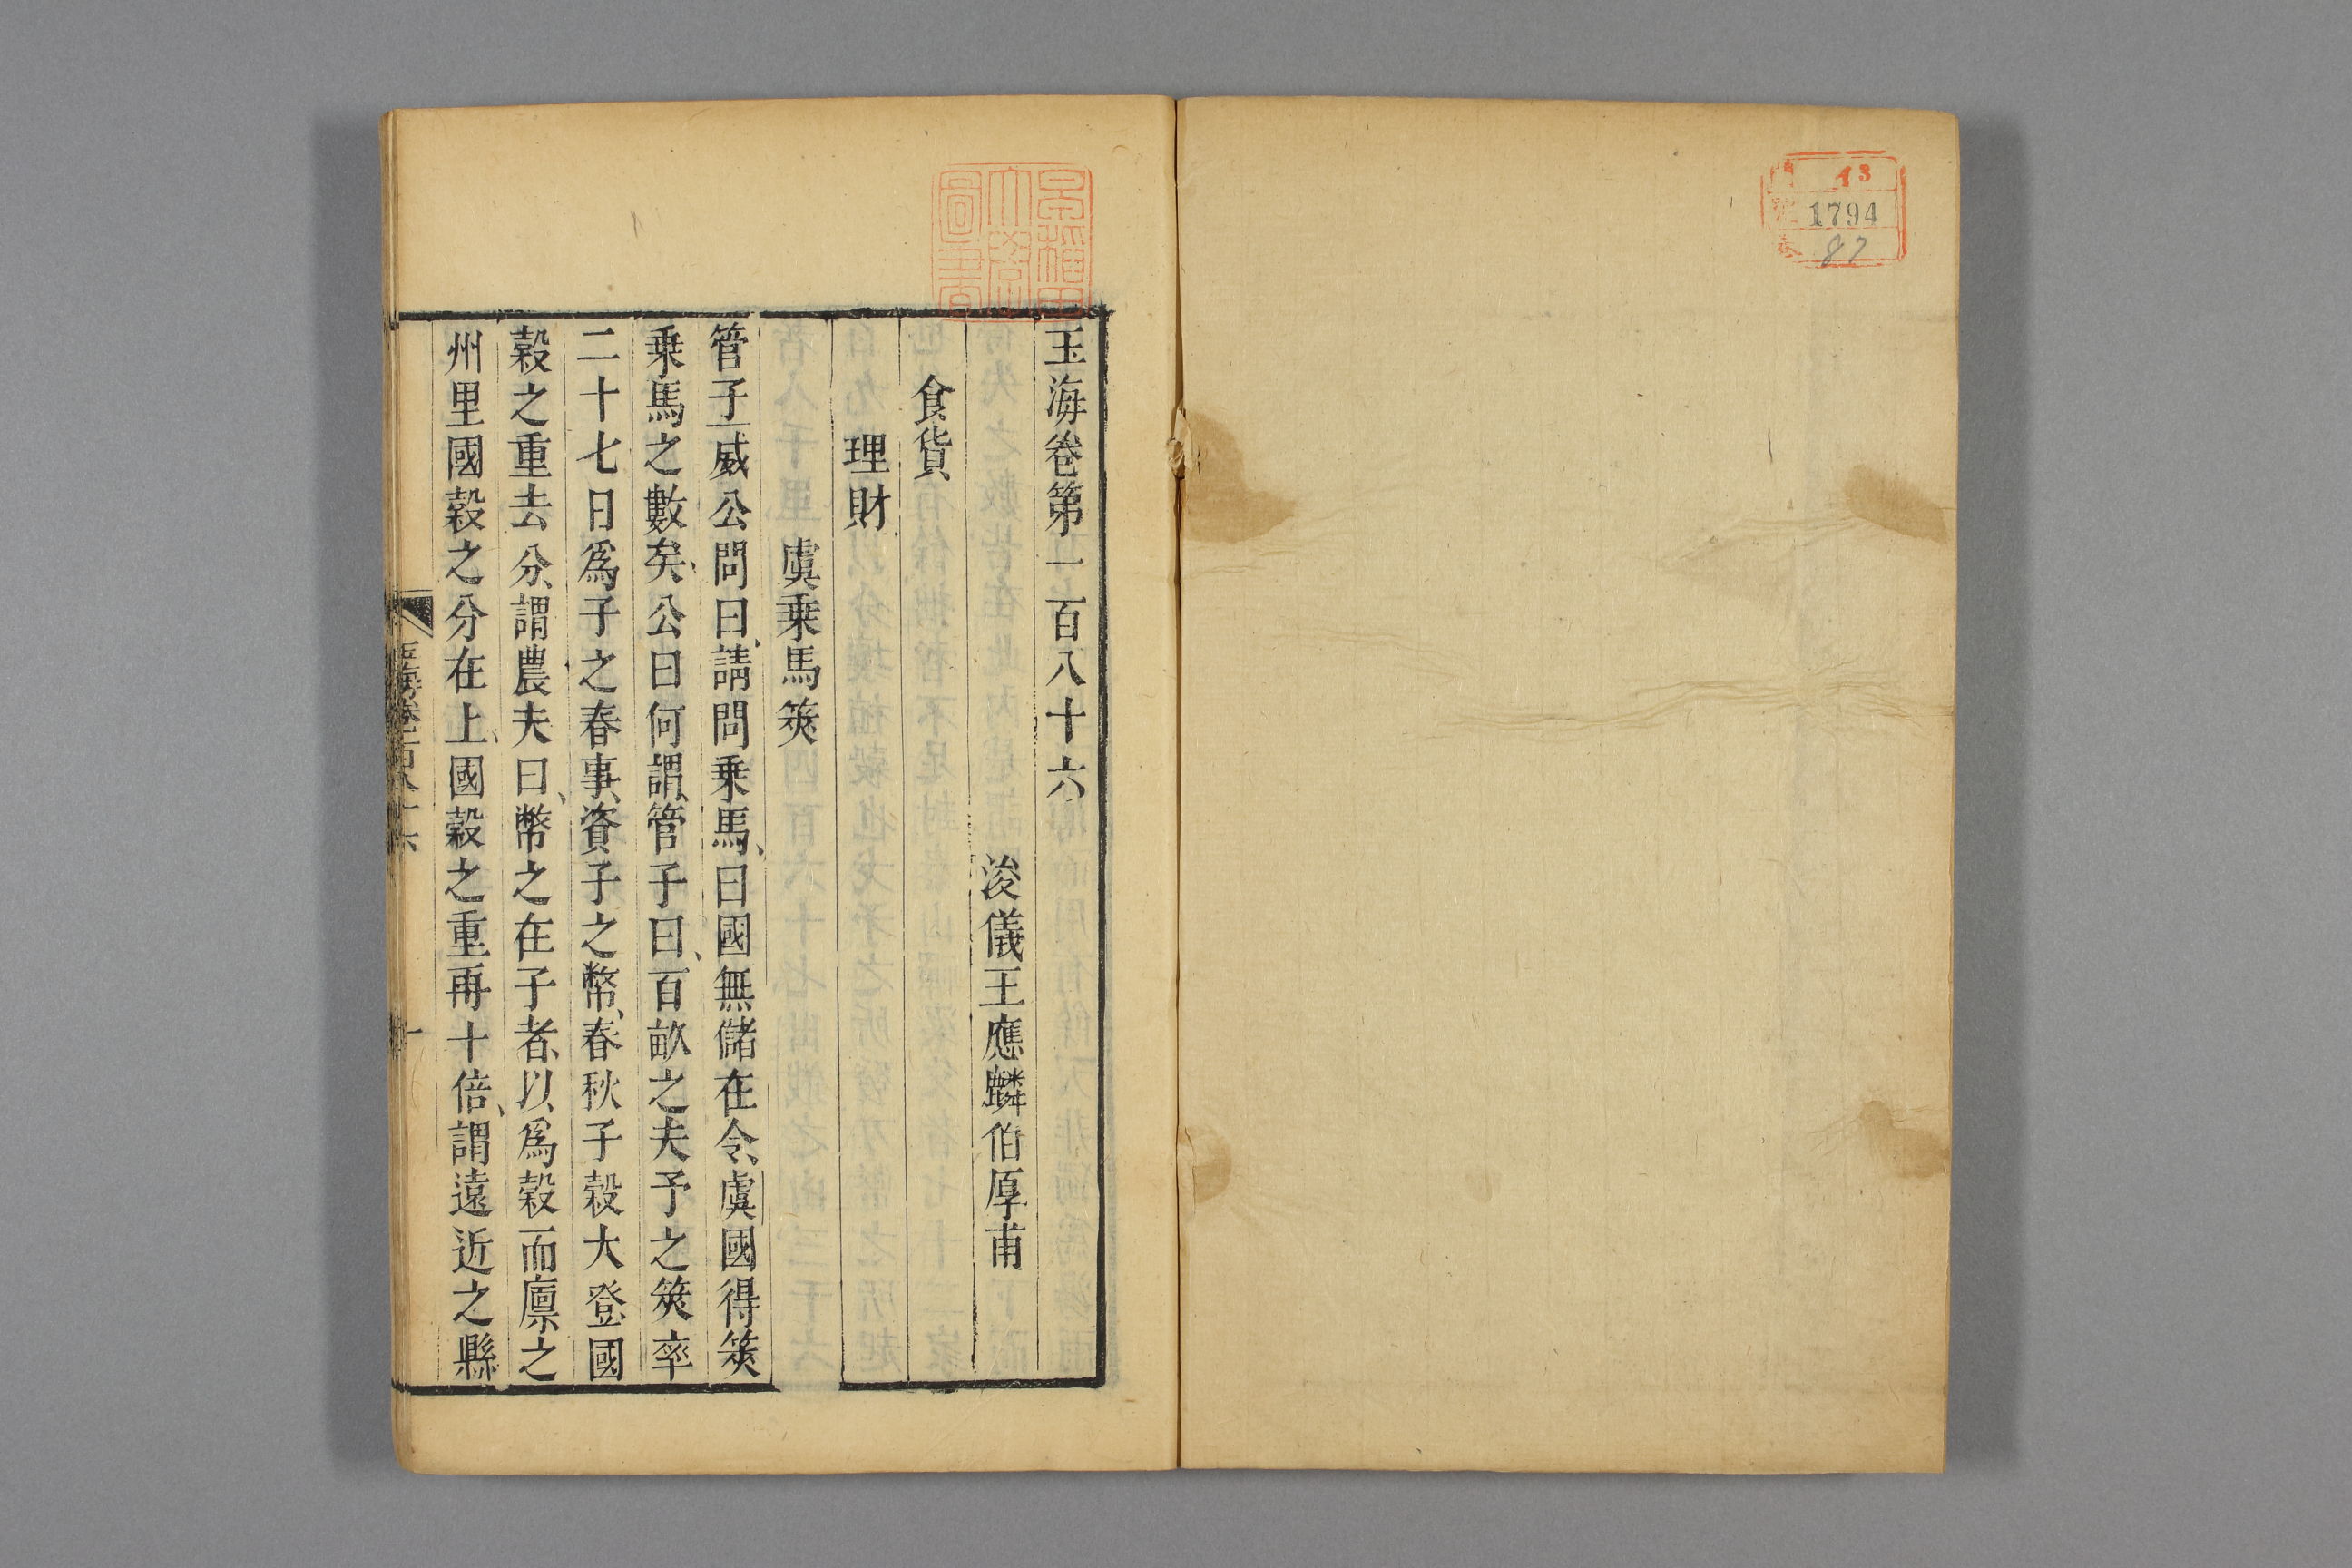 13
1794
87
早稲田大學圖書
玉海卷第一百八十六
浚儀王應麟伯厚甫
食貨
理財
虞乗馬筴
管子威公問曰、請問乗馬、曰國無儲在令、虞國得筴
乗馬之數矣、公曰何謂、管子曰、百畝之夫予之筴率
二十七日爲子之春事、資子之幣、春秋子穀大登、國
穀之重去分、謂農夫曰、幣之在子者、以爲穀而廩之
州里國穀之分在上、國穀之重再十倍、謂遠近之縣
玉海卷一百八十六
一